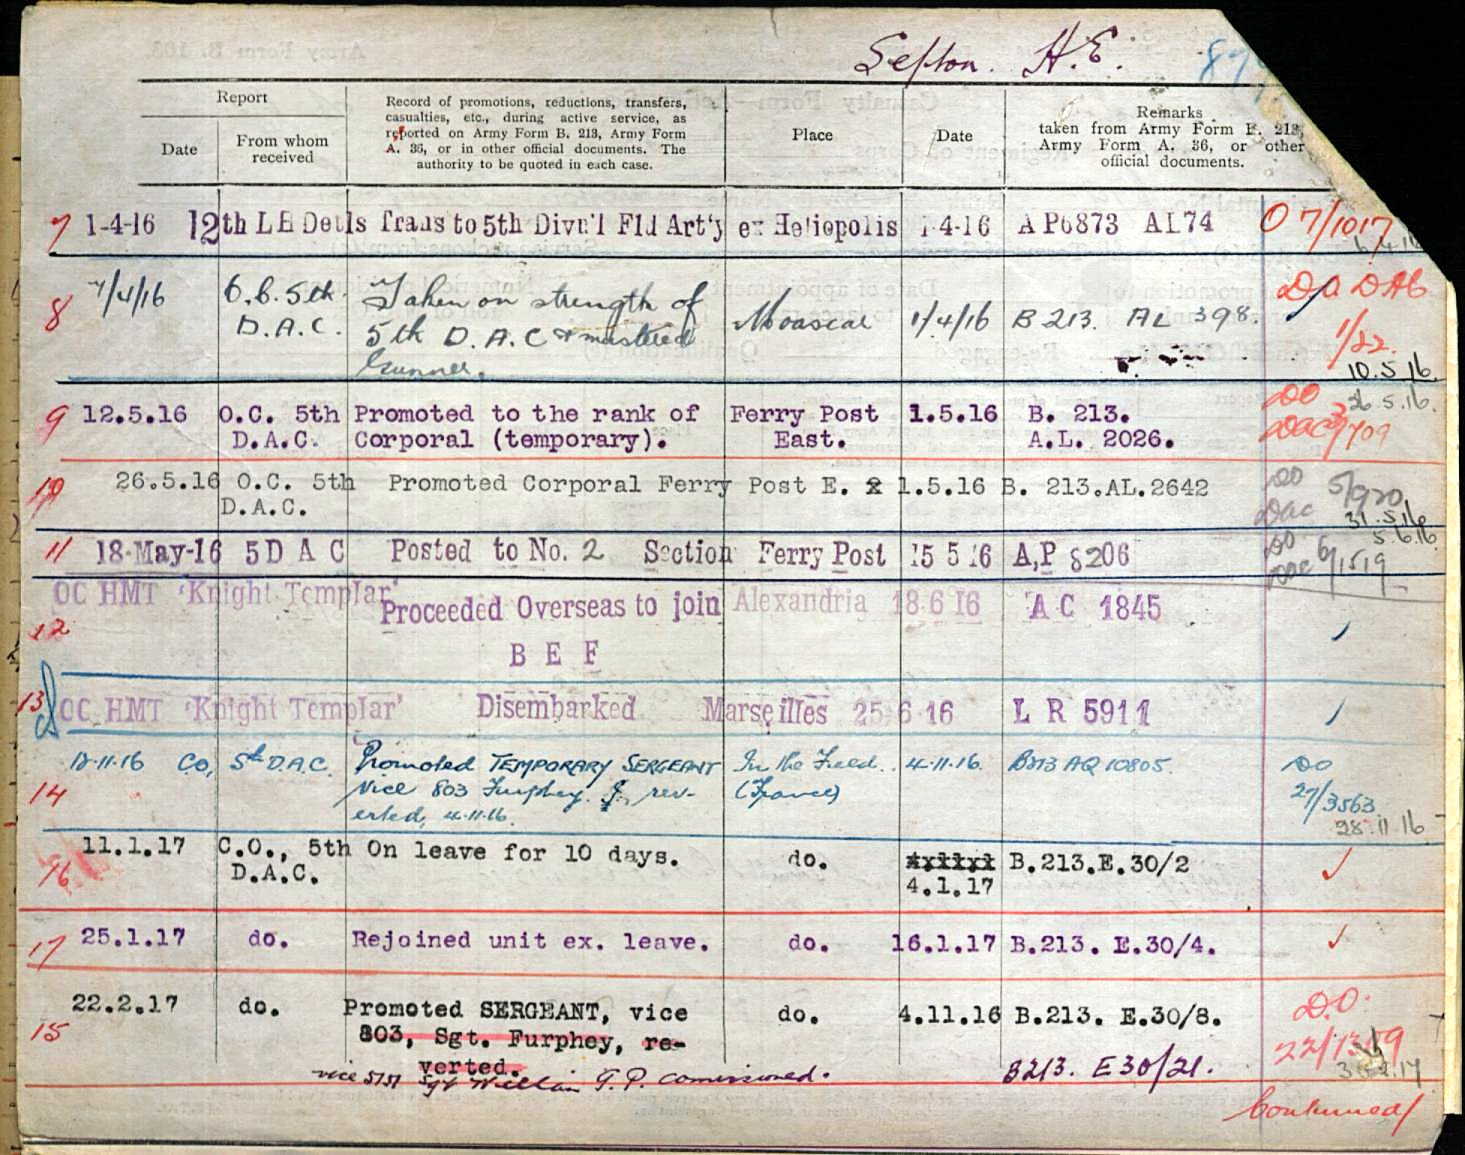 Sefton. H.E.
Report
Date
From whom received
Record of promotions, reductions, transfers,
casualties, etc., during active service, as
reported on Army Form B. 213, Army Form
A. 36, or in other official documents. The
authority to be quoted in each case.
Place
Date
Remarks
taken from Army Form B. 213,
Army Form A. 36, or other
official documents.
7 1-4-16 12th LH Detls Trans to 5th Divn'l Fld Art'y ex Heliopolis 1-4-16 AP6873 AL74 O 7/1017
8 7/4/16 O.C. 5th Taken on strength of Moascar 1/4/16 B 213. AL 398. DO DAC
D.A.C. 5th D.A.C & mustered 1/22.
Gunner. 10.5.16.
9 12.5.16 O.C. 5th Promoted to the rank of Ferry Post 1.5.16 B. 213. DO 26.5.16.
D.A.C. Corporal (temporary). East. A.L. 2026. DAC 3/709
10 26.5.16 O.C. 5th Promoted Corporal Ferry Post E. 1.5.16 B. 213.AL.2642 DO 5/920
D.A.C. DAC 31.5.16
11 18-May-16 5 D A C Posted to No. 2 Section Ferry Post 15 5 16 A,P 8206 DO 6/1519 5.6.16.
DAC
12 OC HMT 'Knight Templar' Proceeded Overseas to join Alexandria 18 6 16 A C 1845
B E F
13 OC HMT 'Knight Templar' Disembarked Marseilles 25 6 16 L R 5911
14 12.11.16 CO, 5th D.A.C. Promoted TEMPORARY SERGEANT In the Field. 4.11.16. B213 AQ 10805. DO
vice 803 Furphey. J. rev- (France) 27/3563
erted, 4.11.16. 28.11.16
16 11.1.17 C.O., 5th On leave for 10 days. do. B.213.E.30/2
D.A.C. 4.1.17
17 25.1.17 do. Rejoined unit ex. leave. do. 16.1.17 B.213. E.30/4.
15 22.2.17 do. Promoted SERGEANT, vice do. 4.11.16 B.213. E.30/8. D.O.
803, Sgt. Furphey, re-
verted.
vice 5151 Sgt William G.P. comissioned. B213. E30/21.
Continued/